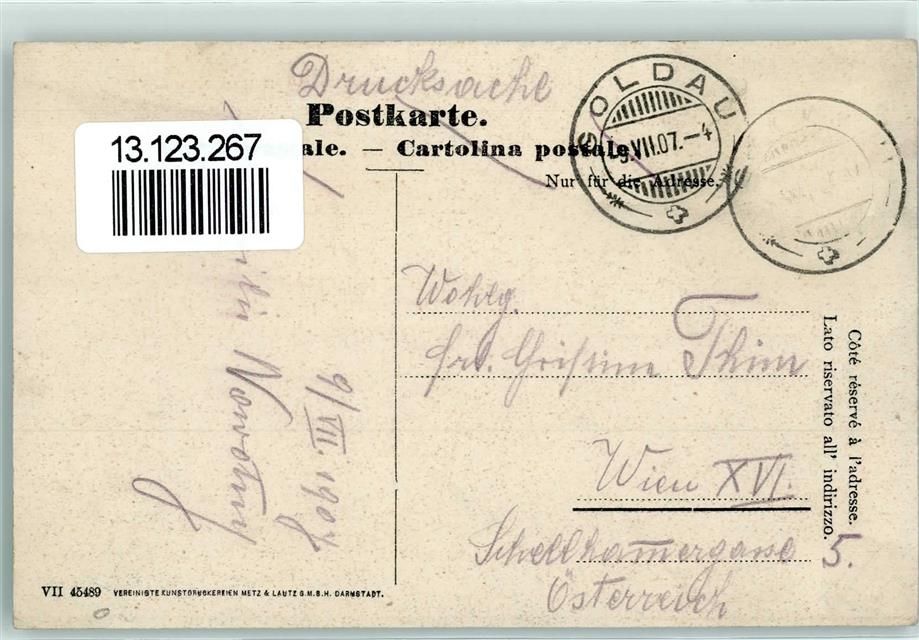 Drucksache
Postkarte.
ale. — Cartolina postale
Nur für die Adresse.
13.123.267
GOLDAU
9.VII.07.–4
Wohlg.
Frl. Christine Thim
Wien XVI.
Schellhamergasse 5.
Österreich
Côté réservé à l'adresse.
Lato riservato all' indirizzo.
9/VII. 1907
Nowotny
VII 45489 VEREINIGTE KUNSTDRUCKEREIEN METZ & LAUTZ G.M.B.H. DARMSTADT.